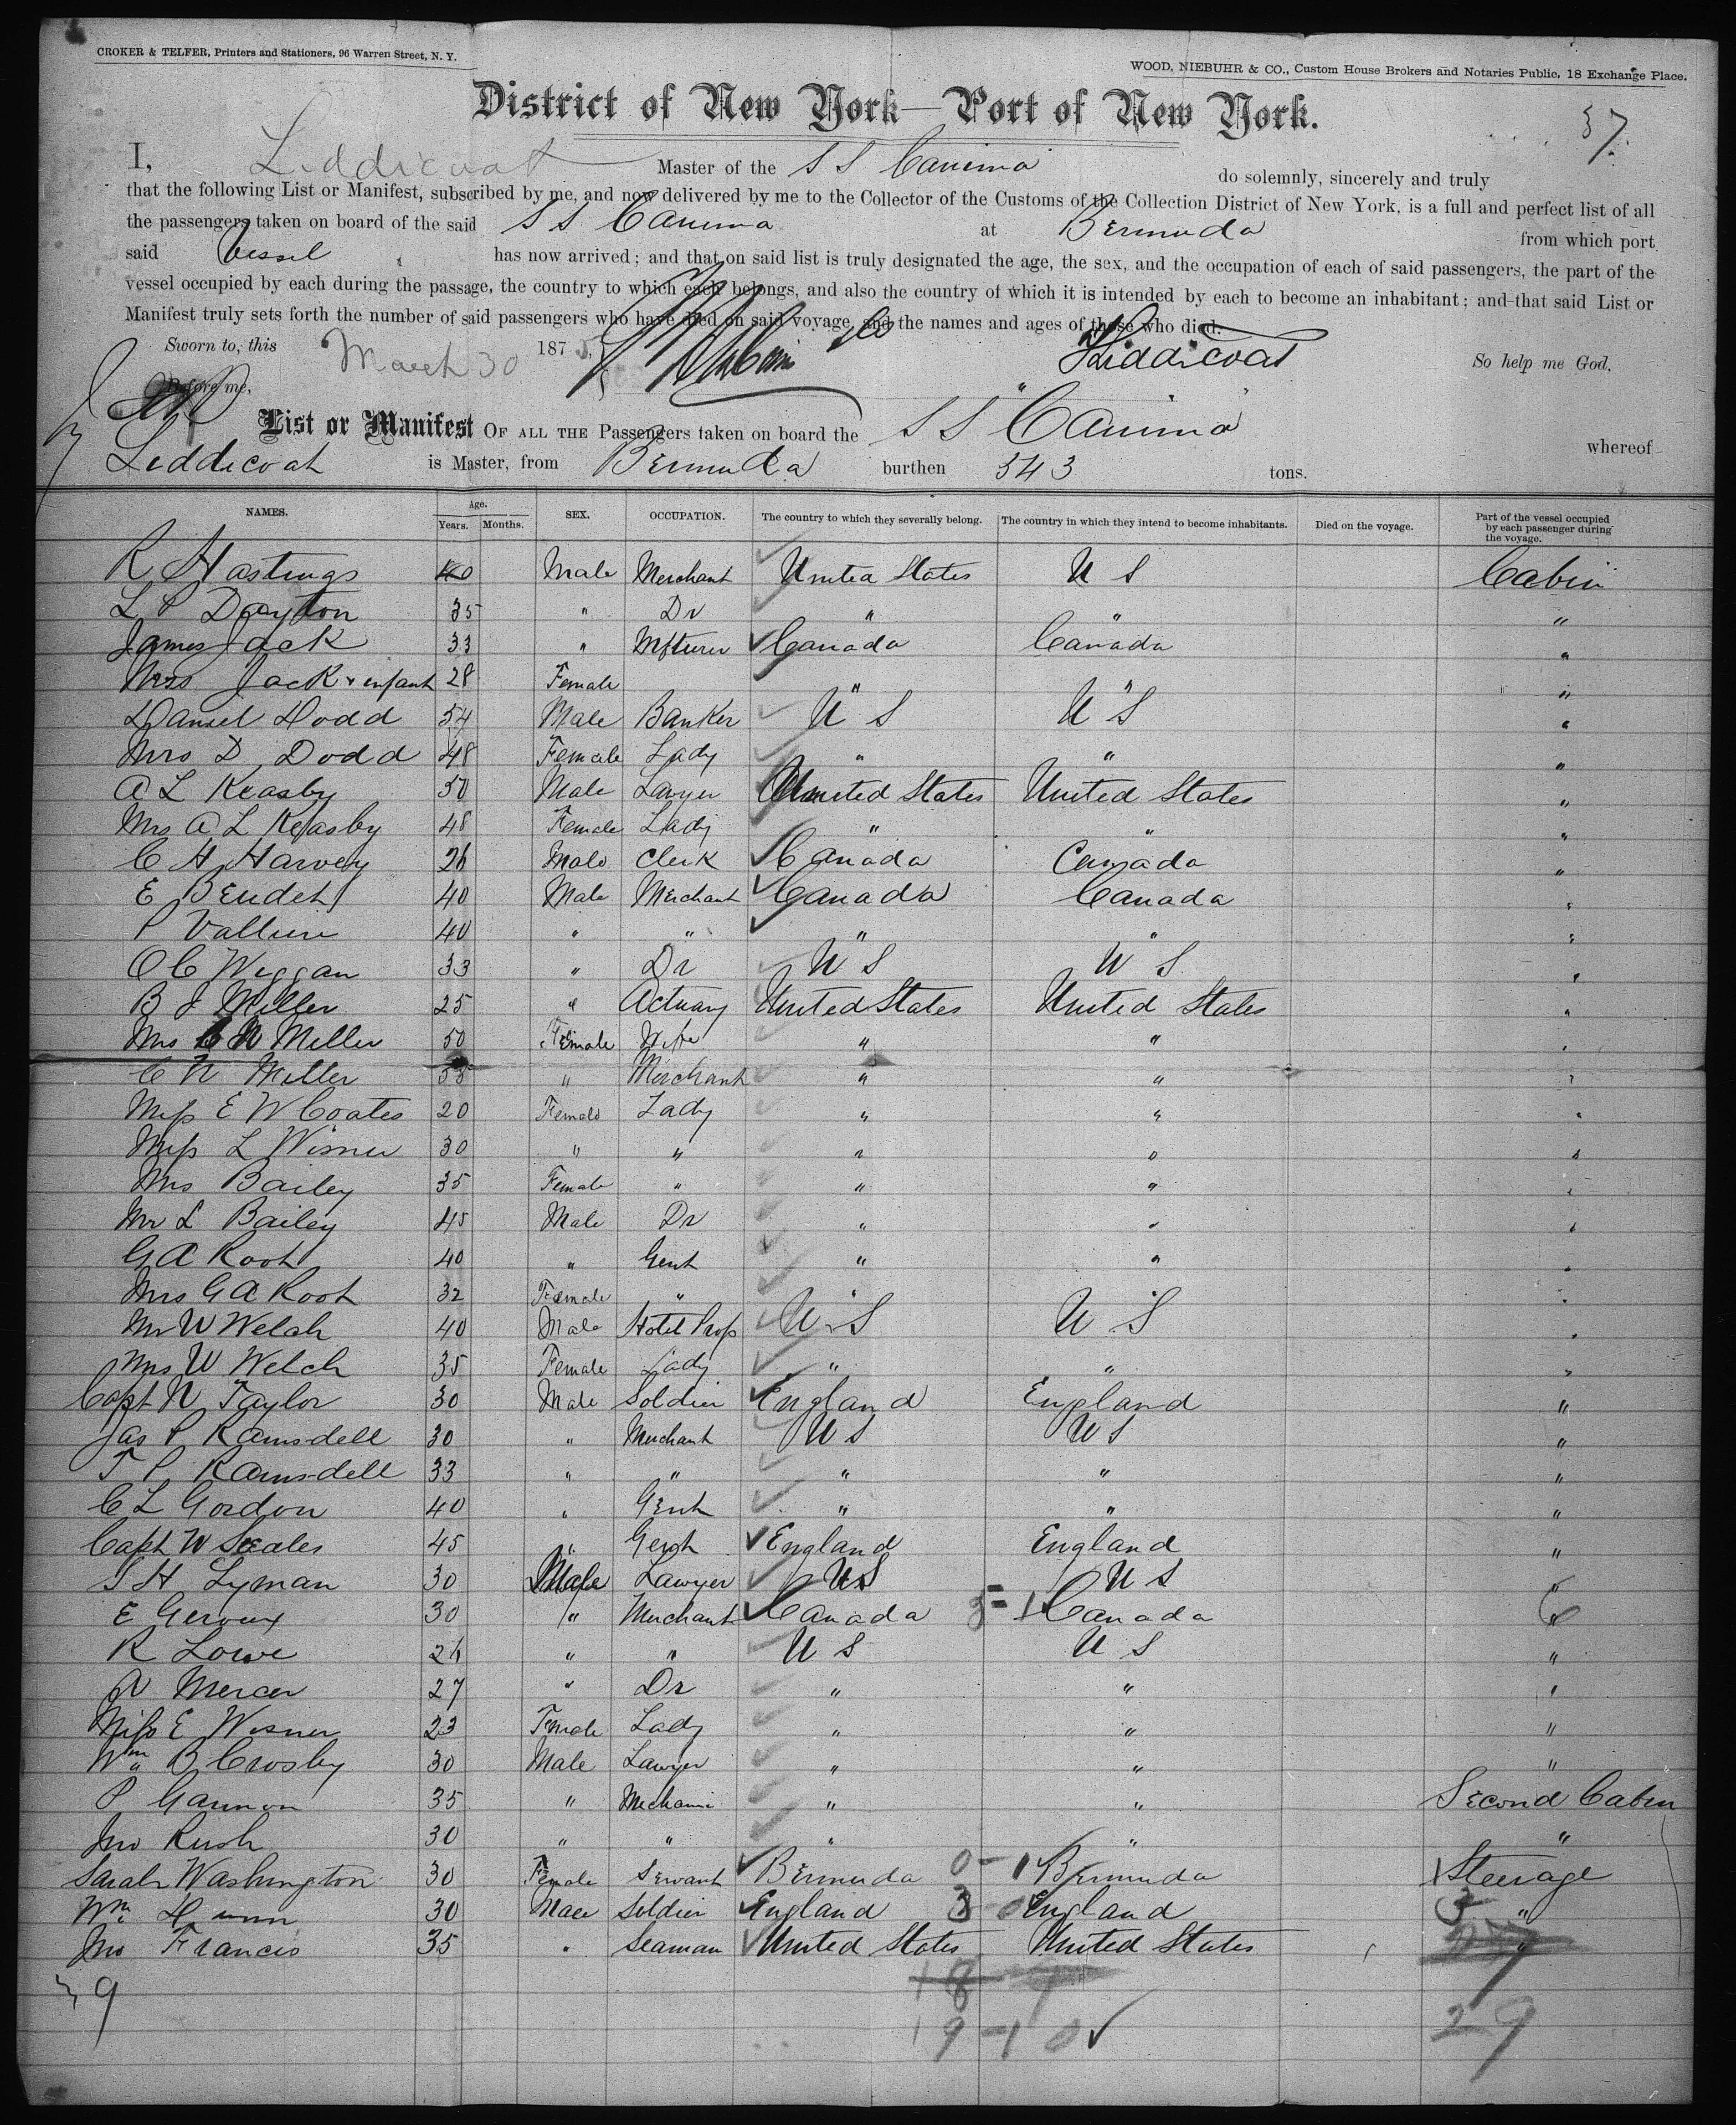 CROKER & TELFER, Printers and Stationers, 96 Warren Street, N. Y.
WOOD, NIEBUHR & CO., Custom House Brokers and Notaries Public, 18 Exchange Place.
District of New York—Port of New York.
37
I, Liddicoat Master of the S S Canima do solemnly, sincerely and truly
that the following List or Manifest, subscribed by me, and now delivered by me to the Collector of the Customs of the Collection District of New York, is a full and perfect list of all
the passengers taken on board of the said S S Canima at Bermuda from which port
said Vessel has now arrived; and that on said list is truly designated the age, the sex, and the occupation of each of said passengers, the part of the
vessel occupied by each during the passage, the country to which each belongs, and also the country of which it is intended by each to become an inhabitant; and that said List or
Manifest truly sets forth the number of said passengers who have died on said voyage, and the names and ages of those who died.
Sworn to, this March 30 1875, Liddicoat So help me God.
Before me,
List or Manifest OF ALL THE Passengers taken on board the S S "Canima" whereof
Liddicoat is Master, from Bermuda burthen 343 tons.
NAMES. Age. Years. Months. SEX. OCCUPATION. The country to which they severally belong. The country in which they intend to become inhabitants. Died on the voyage. Part of the vessel occupied by each passenger during the voyage.
R Hastings 40 Male Merchant United States U S Cabin
L P Dayton 35 " Dr " " "
James Jack 33 " Mfturer Canada Canada "
Mrs Jack & infant 28 Female " " "
Daniel Dodd 54 Male Banker U S U S "
Mrs D Dodd 48 Female Lady " " "
A L Keasby 50 Male Lawyer United States United States "
Mrs A L Keasby 48 Female Lady " " "
C H Harvey 26 Male Clerk Canada Canada "
E Beudet 40 Male Merchant Canada Canada "
P Valliere 40 " " " " "
O C Wiggan 33 " Dr U S U S "
B J Miller 25 " Actuary United States United States "
Mrs C N Miller 50 Female Wife " " "
C N Miller 55 " Merchant " " "
Miss E W Coates 20 Female Lady " " "
Miss L Wisner 30 " " " " "
Mrs Bailey 35 Female " " " "
Mr L Bailey 45 Male Dr " " "
G A Root 40 " Gent " " "
Mrs G A Root 32 Female " " " "
Mr W Welch 40 Male Hotel Prop U S U S "
Mrs W Welch 35 Female Lady " " "
Capt N Taylor 30 Male Soldier England England "
Jas P Ramsdell 30 " Merchant U S U S "
T P Ramsdell 33 " " " " "
C L Gordon 40 " Gent " " "
Capt W Scales 45 " Gent England England "
S H Lyman 30 Male Lawyer U S U S "
E Geroux 30 " Merchant Canada 3=1 Canada "
R Lowe 26 " " U S U S "
A Mercer 27 " Dr " " "
Miss E Wisner 23 Female Lady " " "
Wm B Crosby 30 Male Lawyer " " "
P Gannon 35 " Mechanic " " Second Cabin
Jno Rush 30 " " " " "
Sarah Washington 30 Female Servant Bermuda 0-1 Bermuda Steerage
Wm Dunn 30 Male Soldier England 3-0 England "
Jno Francis 35 " Seaman United States United States "
39
18
19-10
29